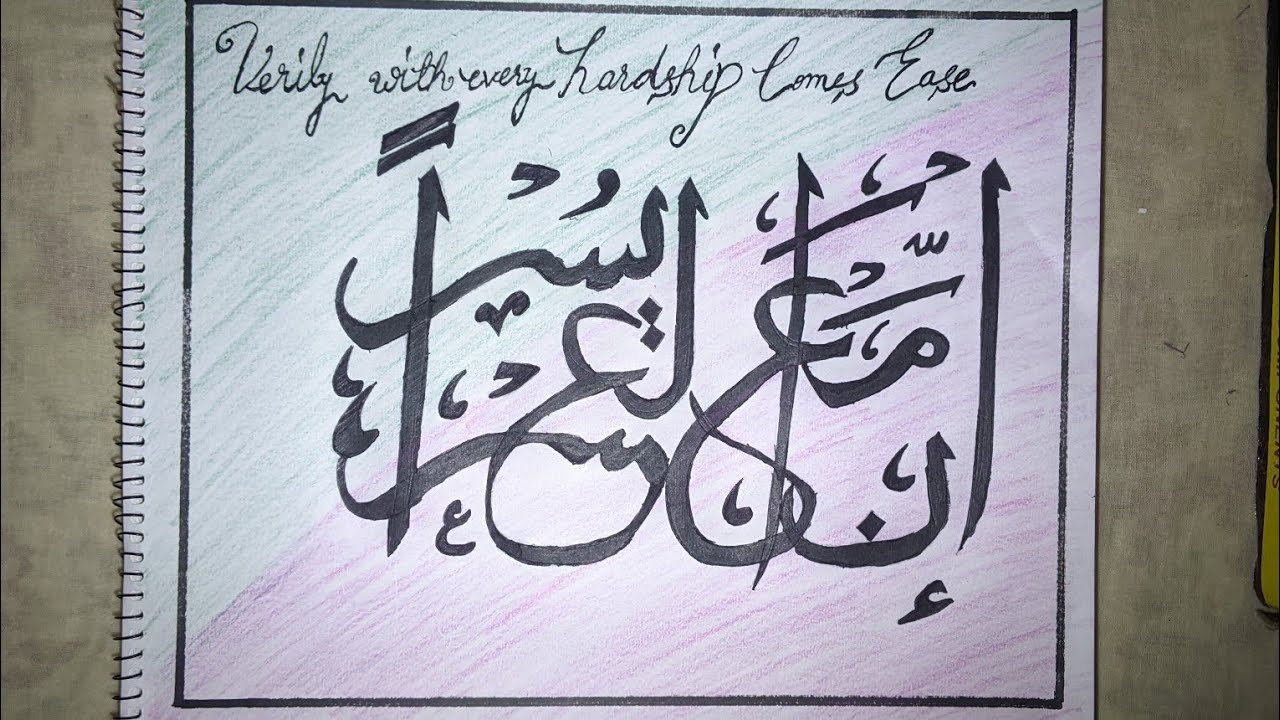 Verily with every hardship Comes Ease
إن مع العسر يسراً